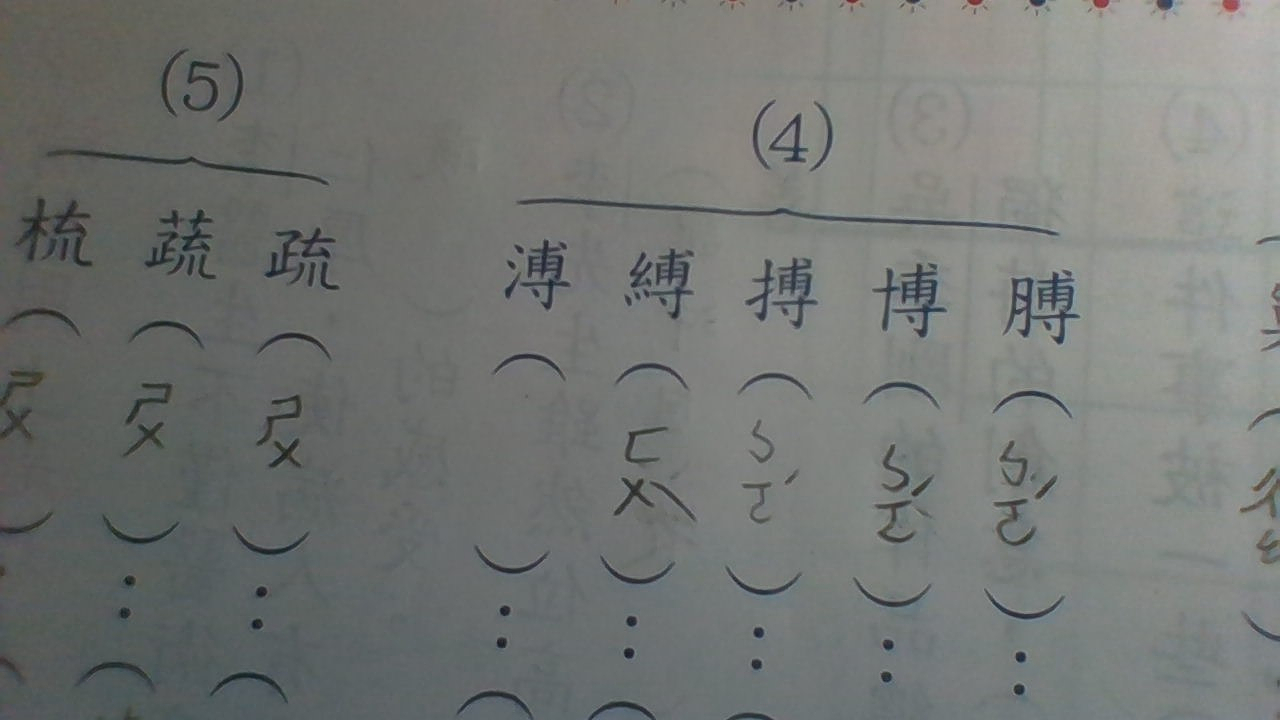 (4)
膊(ㄅㄛˊ):(
博(ㄅㄛˊ):(
搏(ㄅㄛˊ):(
縛(ㄈㄨˋ):(
溥( ):(
(5)
疏(ㄕㄨ):(
蔬(ㄕㄨ):(
梳(ㄕㄨ)